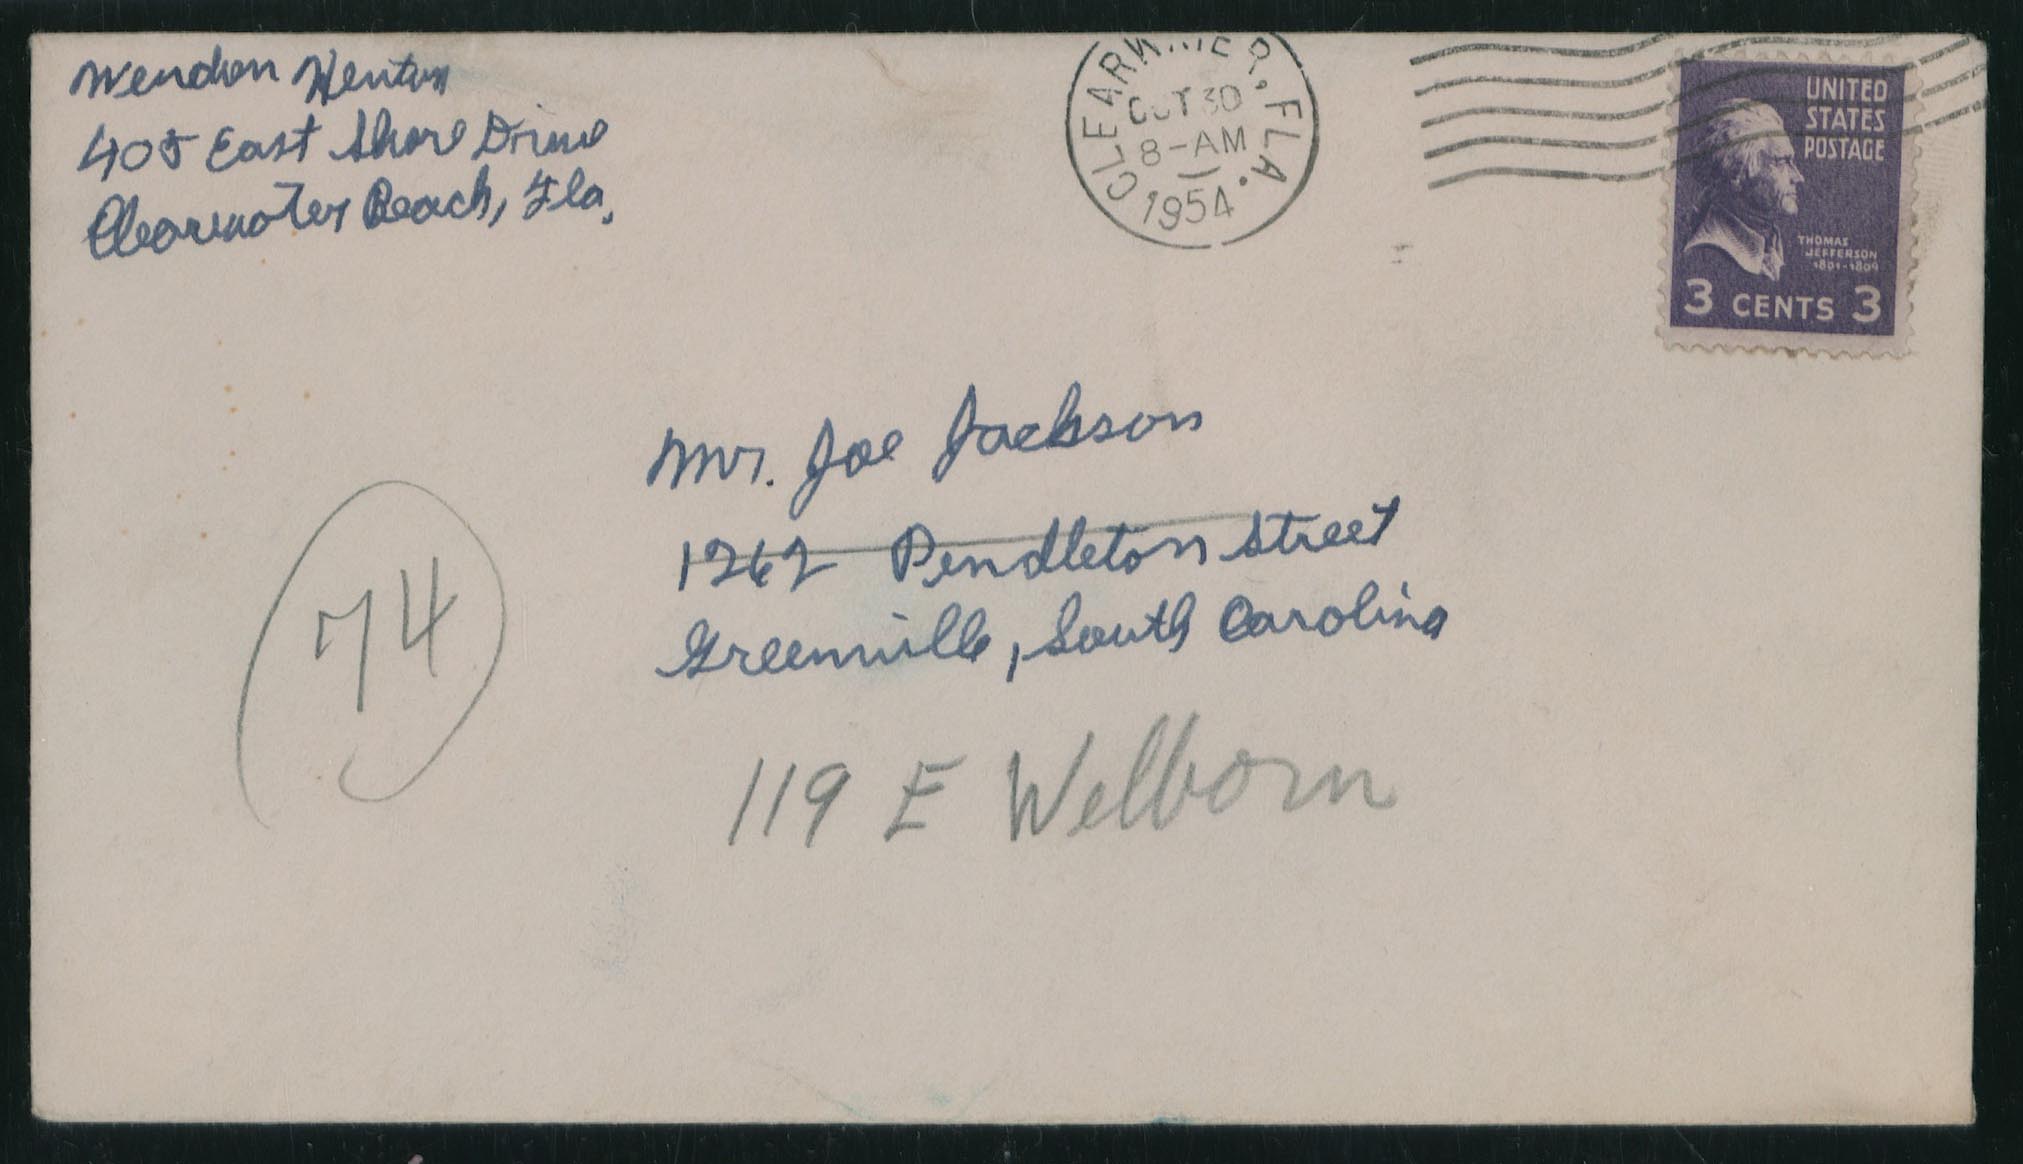 Wendon Henton
405 East Shore Drive
Clearwater Beach, Fla.
CLEARWATER, FLA.
OCT 30
8-AM
1954
UNITED
STATES
POSTAGE
THOMAS
JEFFERSON
1801-1809
3 CENTS 3
Mr. Joe Jackson
1262 Pendleton Street
Greenville, South Carolina
74
119 E Welborn